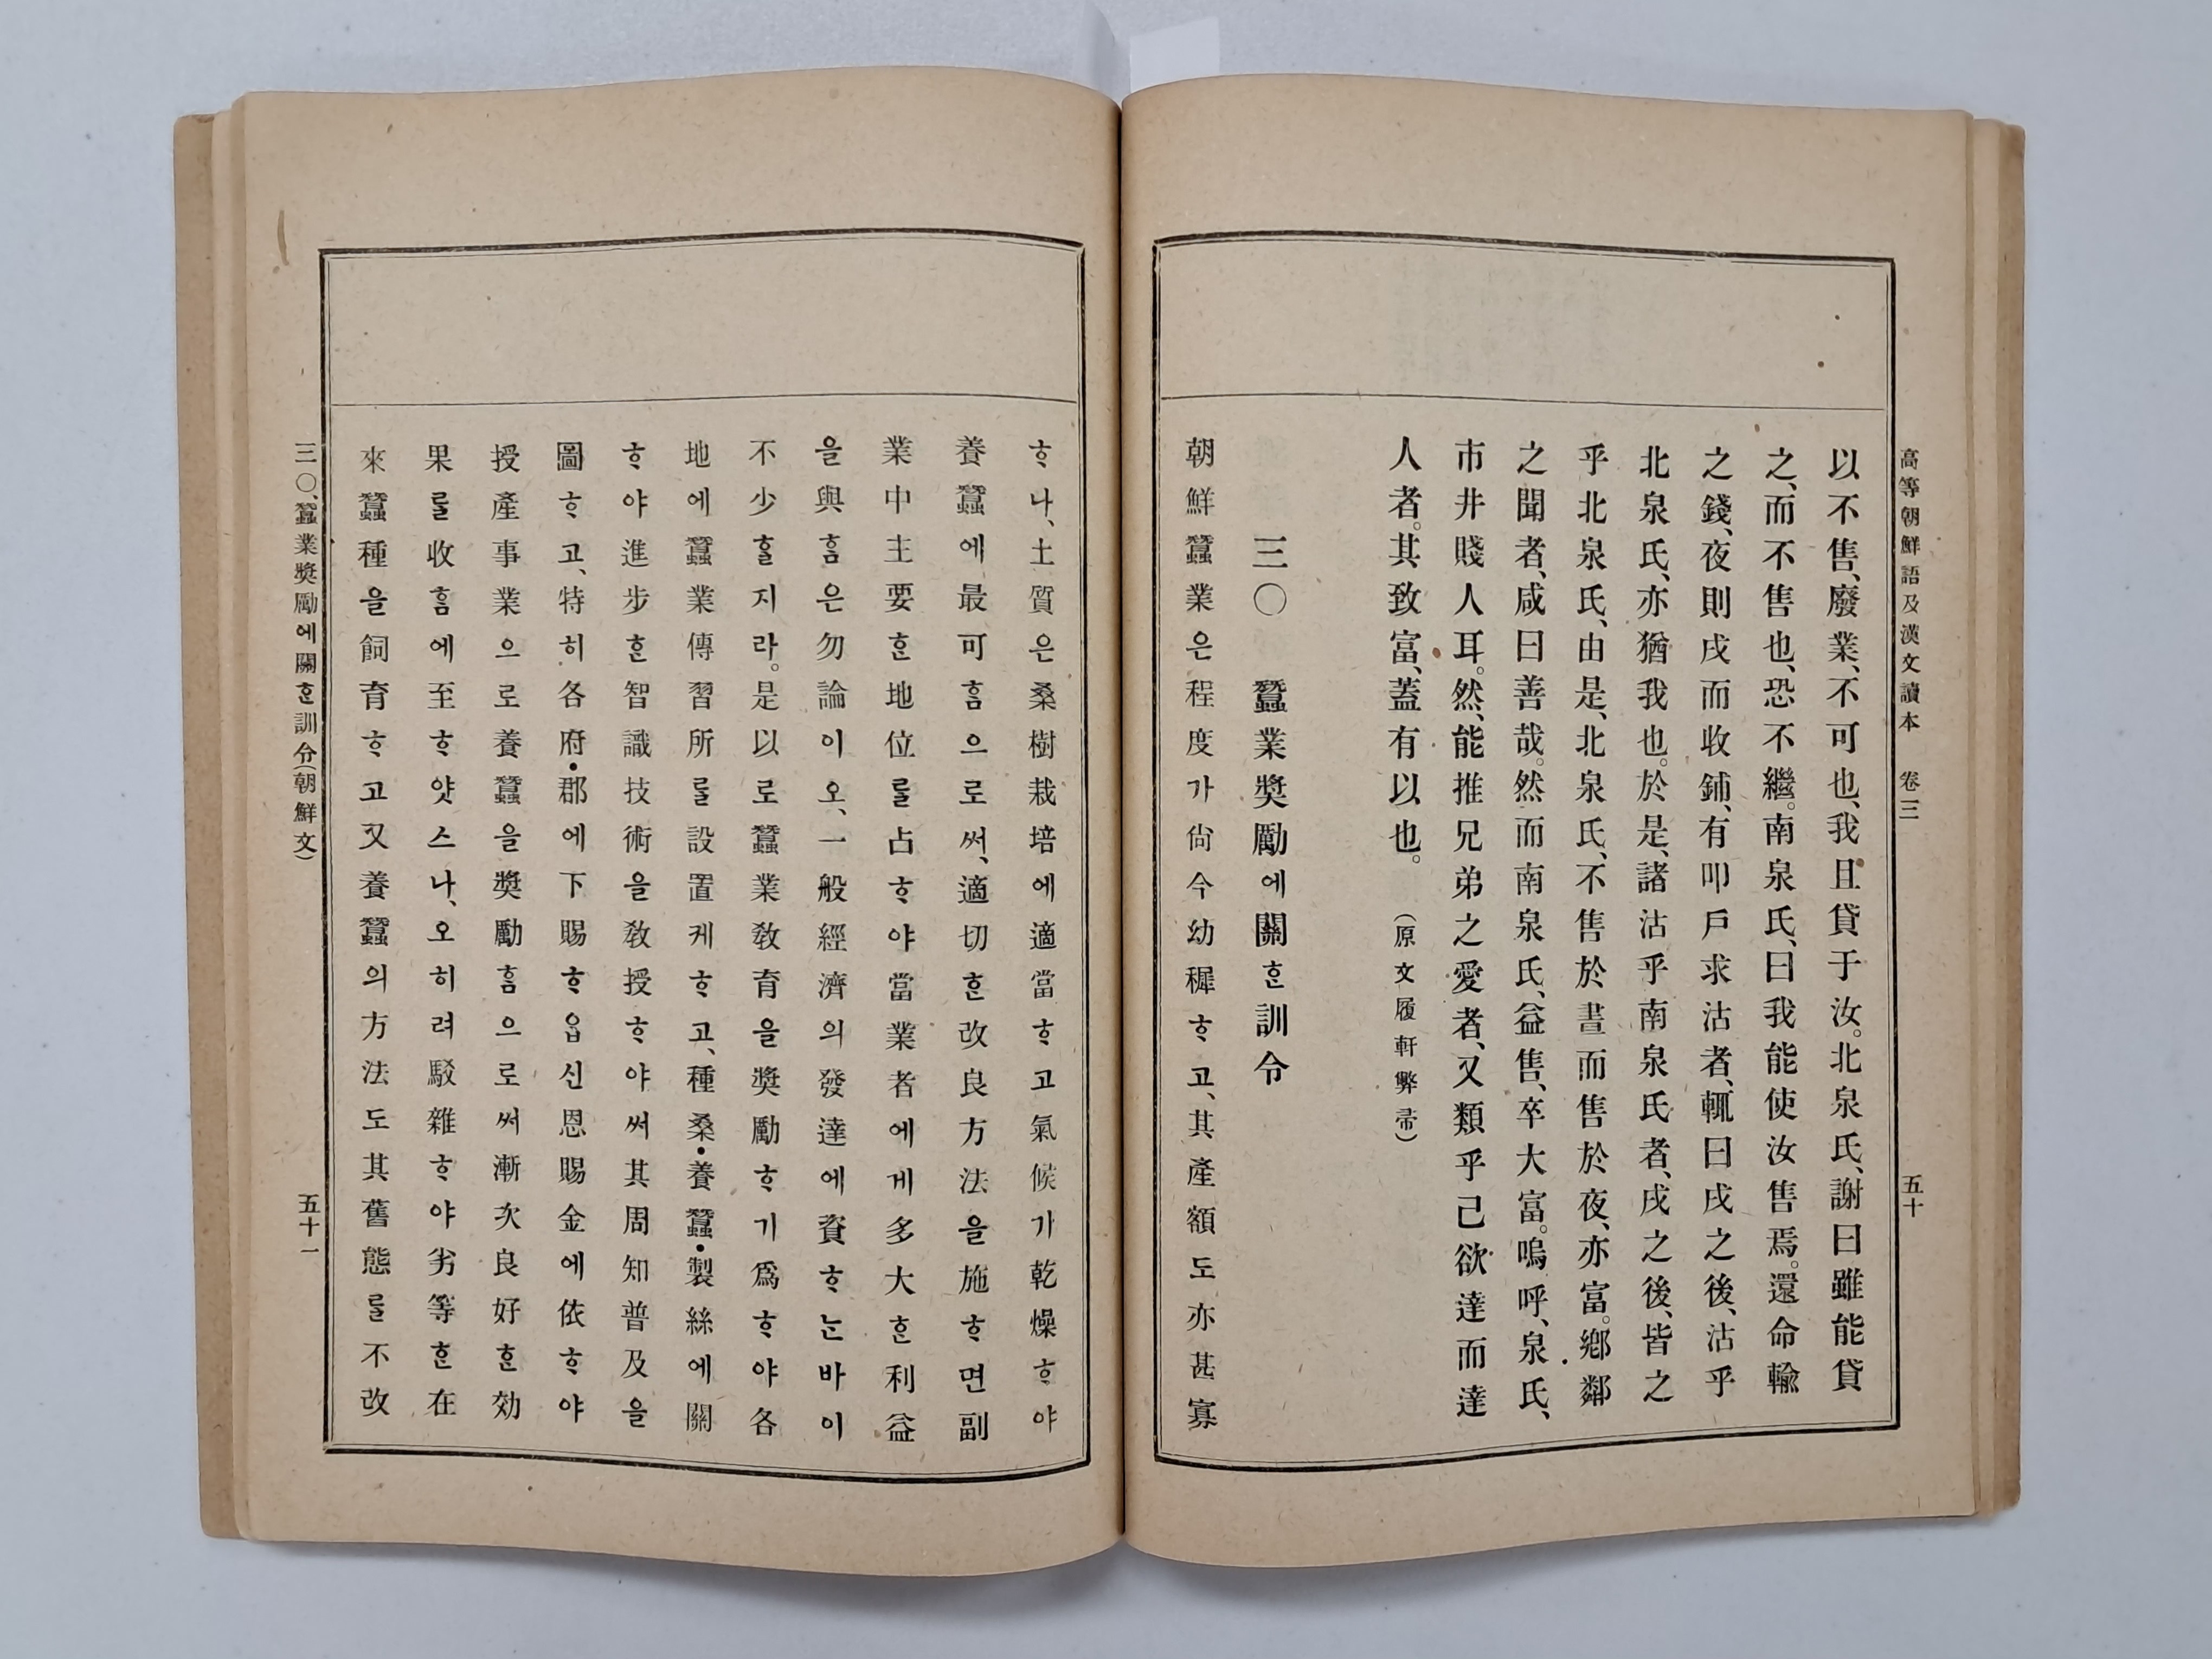 高等朝鮮語及漢文讀本 卷三 五十
以不售、廢業、不可也、我且貸于汝。北泉氏、謝曰雖能貸
之、而不售也、恐不繼。南泉氏、曰我能使汝售焉。還命輸
之錢、夜則戌而收鋪、有叩戶求沽者、輒曰戌之後、沽乎
北泉氏、亦猶我也。於是、諸沽乎南泉氏者、戌之後、皆之
乎北泉氏、由是、北泉氏、不售於晝而售於夜、亦富。鄕鄰
之聞者、咸曰善哉。然而南泉氏、益售、卒大富。嗚呼、泉氏、
市井賤人耳。然、能推兄弟之愛者、又類乎己欲達而達
人者。其致富、蓋有以也。 (原文履軒弊帚)
三〇 蠶業奬勵에關ᄒᆞᆫ訓令
朝鮮蠶業은程度가尙今幼穉ᄒᆞ고、其產額도亦甚寡
ᄒᆞ나、土質은桑樹栽培에適當ᄒᆞ고氣候가乾燥ᄒᆞ야
養蠶에最可ᄒᆞᆷ으로써、適切ᄒᆞᆫ改良方法을施ᄒᆞ면副
業中主要ᄒᆞᆫ地位를占ᄒᆞ야當業者에게多大ᄒᆞᆫ利益
을與ᄒᆞᆷ은勿論이오、一般經濟의發達에資ᄒᆞᄂᆞᆫ바이
不少ᄒᆞᆯ지라。是以로蠶業敎育을奬勵ᄒᆞ기爲ᄒᆞ야各
地에蠶業傳習所를設置케ᄒᆞ고、種桑•養蠶•製絲에關
ᄒᆞ야進步ᄒᆞᆫ智識技術을敎授ᄒᆞ야써其周知普及을
圖ᄒᆞ고、特히各府•郡에下賜ᄒᆞ옵신恩賜金에依ᄒᆞ야
授產事業으로養蠶을奬勵ᄒᆞᆷ으로써漸次良好ᄒᆞᆫ効
果를收ᄒᆞᆷ에至ᄒᆞ얏스나、오히려駁雜ᄒᆞ야劣等ᄒᆞᆫ在
來蠶種을飼育ᄒᆞ고又養蠶의方法도其舊態를不改
三〇、蠶業奬勵에關ᄒᆞᆫ訓令(朝鮮文) 五十一